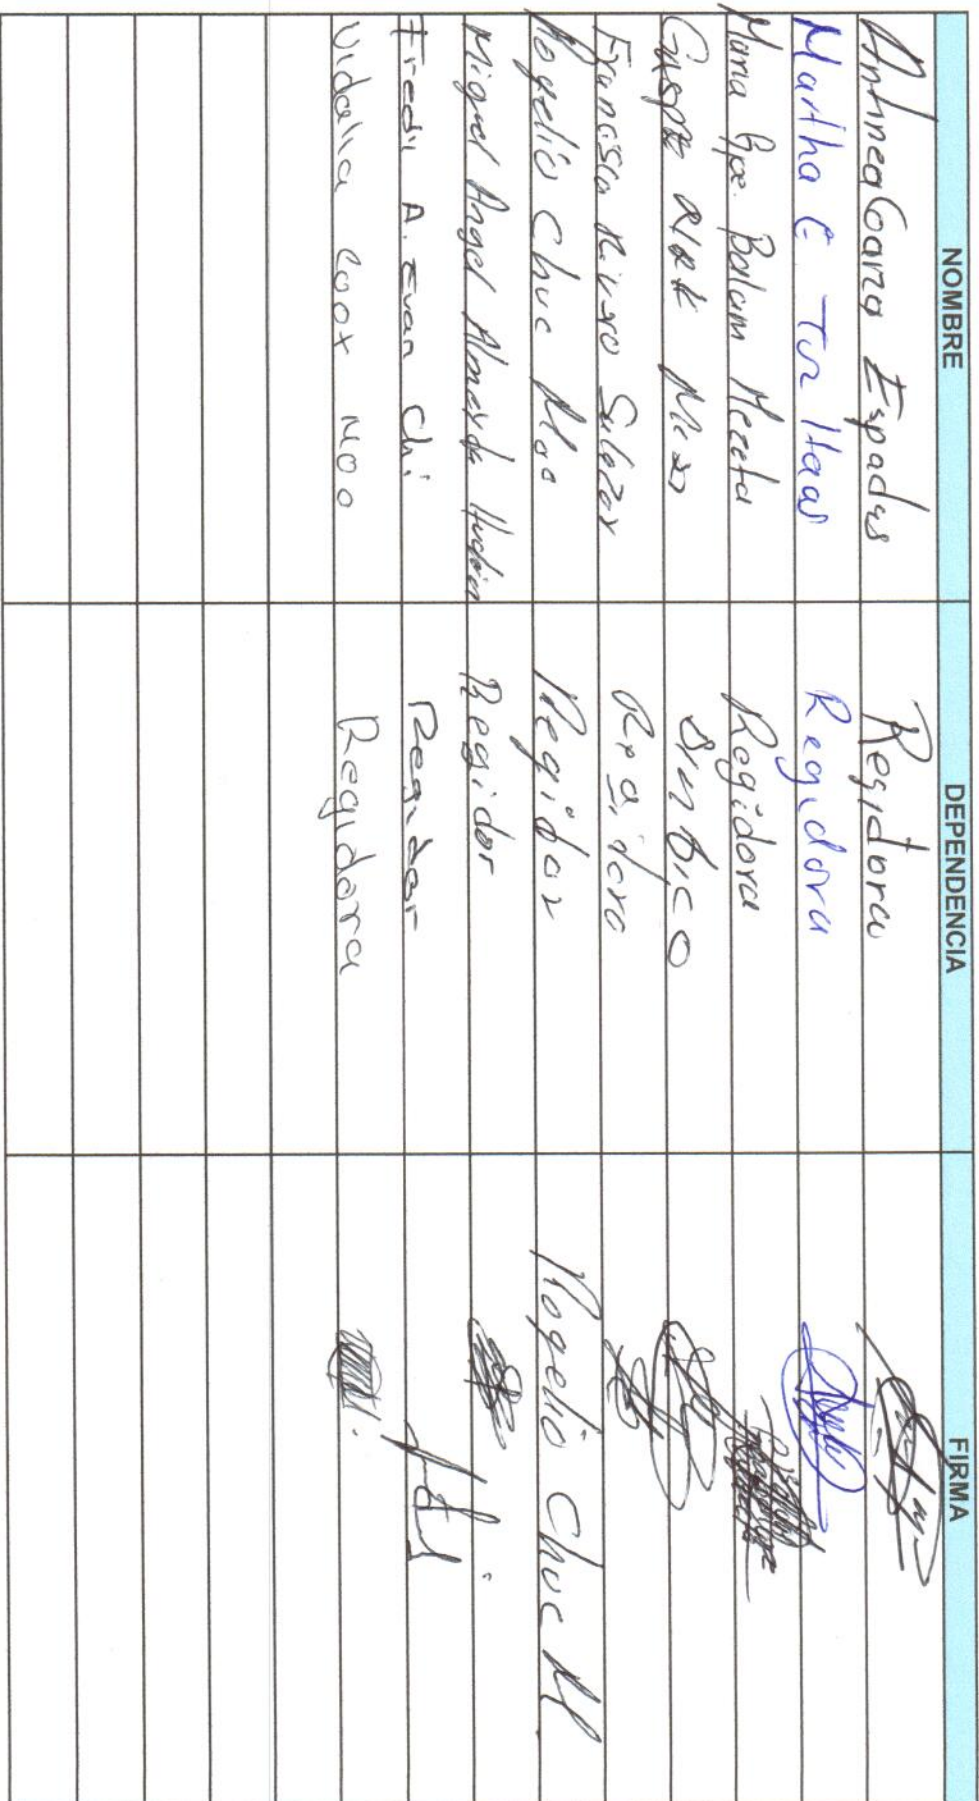 NOMBRE DEPENDENCIA FIRMA
Espadas Regidora
Martha C Tuz Haas Regidora
Maria Gpe. Balam Regidora
Sindico
Francisca Rivero Salazar Regidora
Rogelio Chuc Moo Regidor Rogelio Chuc M
Miguel Angel Almeyda Regidor
Freddy A. Euan Chi Regidor
Vidalia Coox Noo Regidora